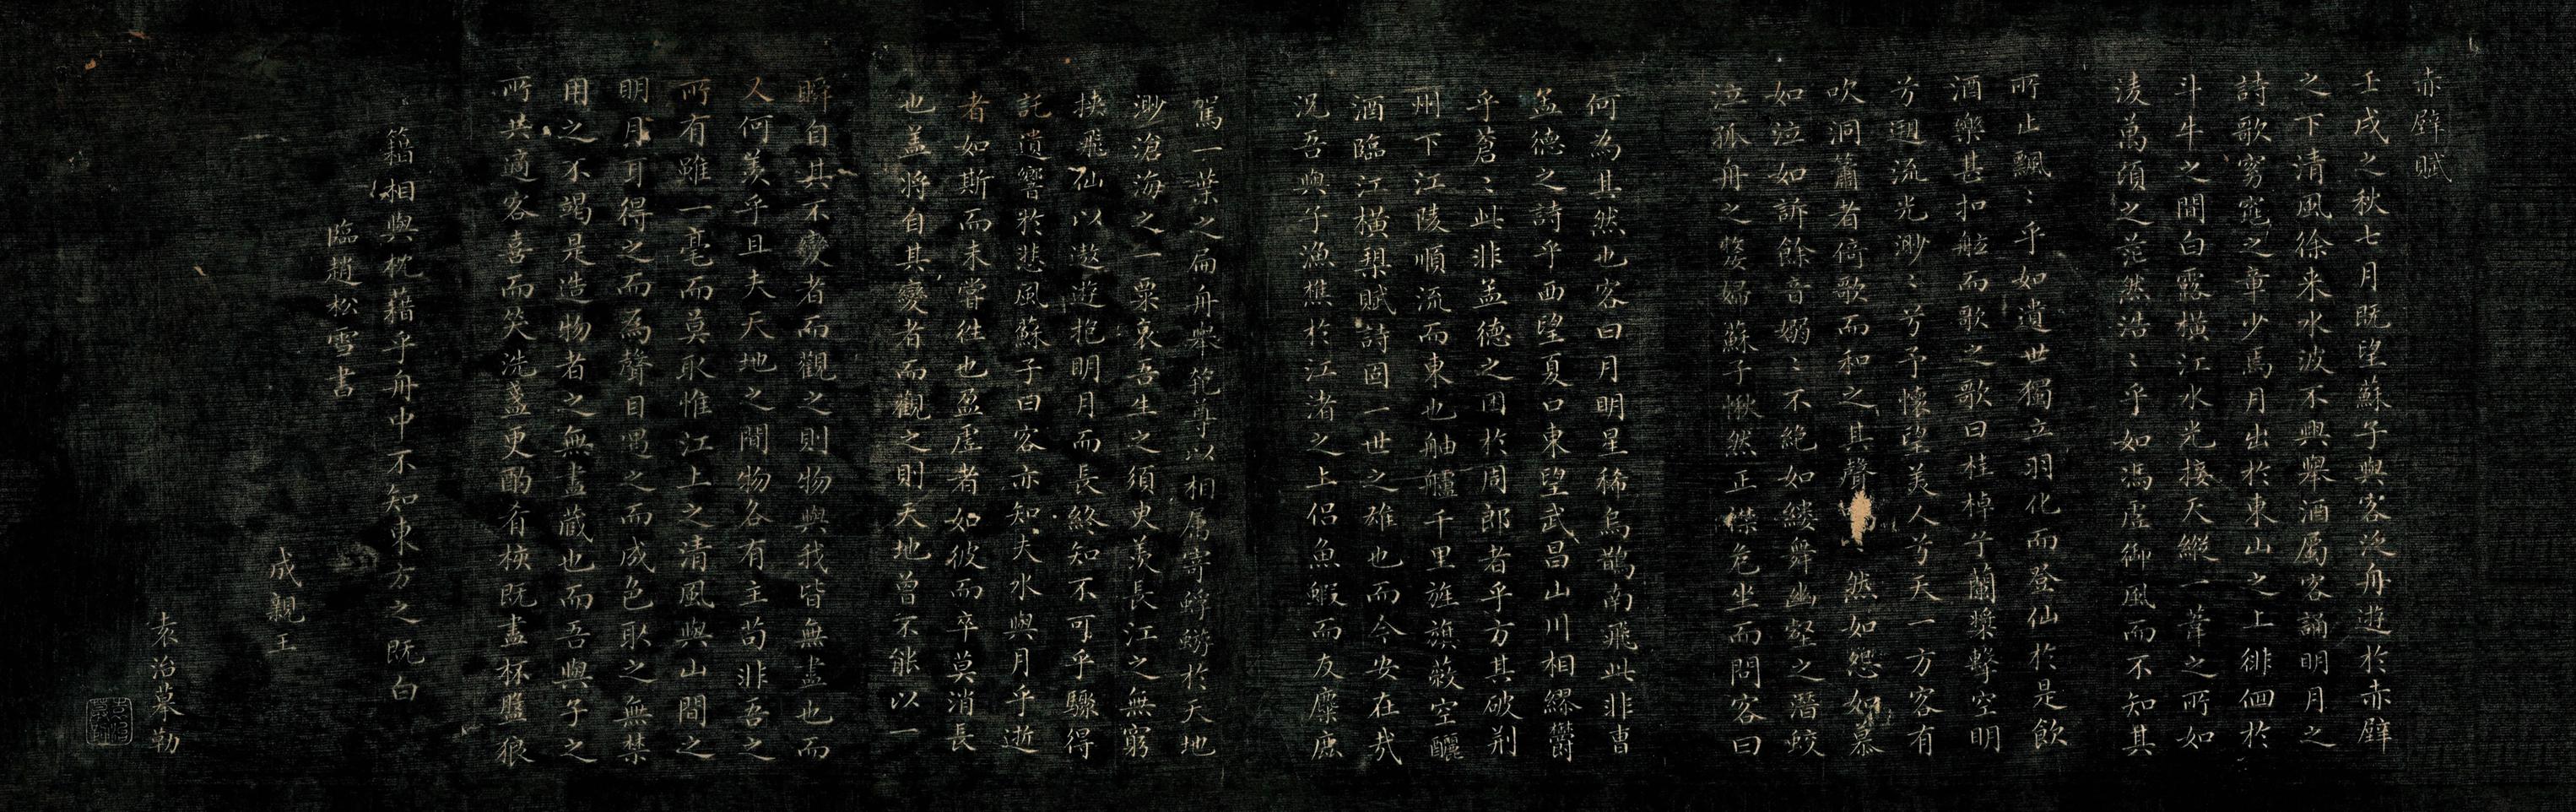 赤壁賦
壬戌之秋七月既望蘇子與客泛舟遊於赤壁
之下清風徐来水波不興舉酒屬客誦明月之
詩歌窈窕之章少焉月出於東山之上徘徊於
斗牛之間白露橫江水光接天縱一葦之所如
淩萬頃之茫然浩〻乎如馮虛御風而不知其
所止飄〻乎如遺世獨立羽化而登仙於是飲
酒樂甚扣舷而歌之歌曰桂棹兮蘭槳擊空明
兮遡流光渺〻兮予懷望美人兮天一方客有
吹洞簫者倚歌而和之其聲然如怨如慕
如泣如訴餘音嫋〻不絶如縷舞幽壑之潛蛟
泣孤舟之嫠婦蘇子愀然正襟危坐而問客曰
何為其然也客曰月明星稀烏鵲南飛此非曹
孟德之詩乎西望夏口東望武昌山川相繆欝
乎蒼〻此非孟德之困於周郎者乎方其破荆
州下江陵順流而東也舳艫千里旌旗蔽空釃
酒臨江橫槊賦詩固一世之雄也而今安在㢤
况吾與子漁樵於江渚之上侣魚蝦而友麋鹿
駕一葉之扁舟舉匏尊以相屬寄蜉蝣於天地
渺滄海之一粟哀吾生之須臾羨長江之無窮
挟飛仙以遨遊抱明月而長終知不可乎驟得
託遺響於悲風蘇子曰客亦知夫水與月乎逝
者如斯而未嘗往也盈虛者如彼而卒莫消長
也盖將自其變者而觀之則天地曾不能以一
瞬自其不變者而觀之則物與我皆無盡也而
又何羨乎且夫天地之間物各有主苟非吾之
所有雖一毫而莫取惟江上之清風與山間之
明月耳得之而為聲目遇之而成色取之無禁
用之不竭是造物者之無盡藏也而吾與子之
所共適客喜而笑洗盞更酌肴核既盡杯盤狼
籍相與枕藉乎舟中不知東方之既白
臨趙松雪書
成親王
袁治摹勒